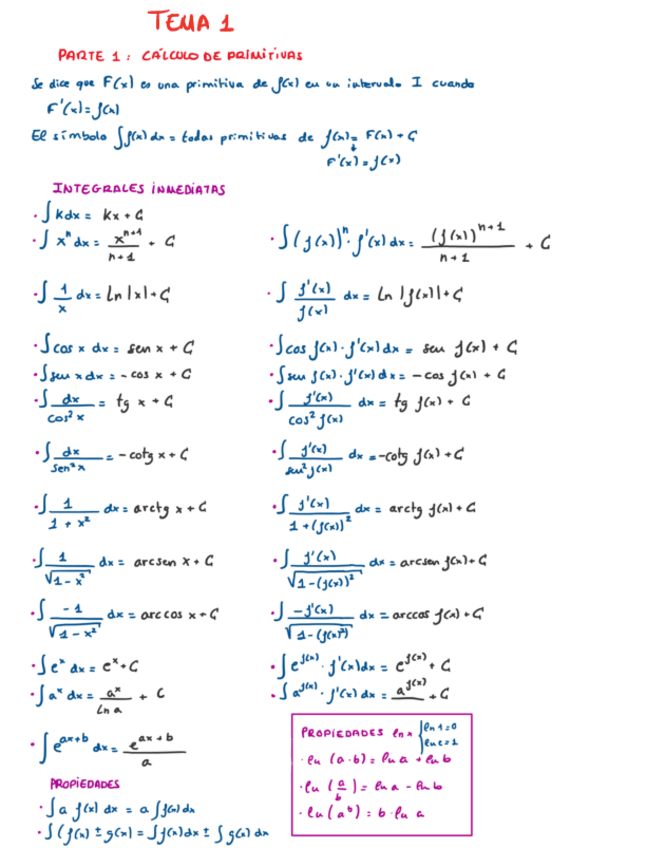 TEMA 1
PARTE 1: CÁLCULO DE PRIMITIVAS
Se dice que F(x) es una primitiva de f(x) en un intervalo I cuando
F'(x) = f(x)
El símbolo ∫f(x) dx = todas primitivas de f(x) = F(x) + C
↓
F'(x) = f(x)
INTEGRALES INMEDIATAS
· ∫ k dx = kx + C
· ∫ xⁿ dx = xⁿ⁺¹/(n+1) + C
· ∫ (f(x))ⁿ · f'(x) dx = (f(x))ⁿ⁺¹/(n+1) + C
· ∫ 1/x dx = Ln |x| + C
· ∫ f'(x)/f(x) dx = Ln |f(x)| + C
· ∫ cos x dx = sen x + C
· ∫ cos f(x) · f'(x) dx = sen f(x) + C
· ∫ sen x dx = - cos x + C
· ∫ sen f(x) · f'(x) dx = - cos f(x) + C
· ∫ dx/cos² x = tg x + C
· ∫ f'(x)/cos² f(x) dx = tg f(x) + C
· ∫ dx/sen² x = - cotg x + C
· ∫ f'(x)/sen² f(x) dx = - cotg f(x) + C
· ∫ 1/(1 + x²) dx = arctg x + C
· ∫ f'(x)/(1 + (f(x))²) dx = arctg f(x) + C
· ∫ 1/√(1 - x²) dx = arcsen x + C
· ∫ f'(x)/√(1 - (f(x))²) dx = arcsen f(x) + C
· ∫ -1/√(1 - x²) dx = arccos x + C
· ∫ -f'(x)/√(1 - (f(x)²) dx = arccos f(x) + C
· ∫ eˣ dx = eˣ + C
· ∫ e^f(x) · f'(x) dx = e^f(x) + C
· ∫ aˣ dx = aˣ/Ln a + C
· ∫ a^f(x) · f'(x) dx = a^f(x) + C
· ∫ e^(ax+b) dx = e^(ax+b)/a
PROPIEDADES ln x { ln 1 = 0
ln e = 1
· ln (a · b) = ln a + ln b
· ln (a/b) = ln a - ln b
· ln (aᵇ) = b · ln a
PROPIEDADES
· ∫ a f(x) dx = a ∫ f(x) dx
· ∫ (f(x) ± g(x) = ∫ f(x) dx ± ∫ g(x) dx